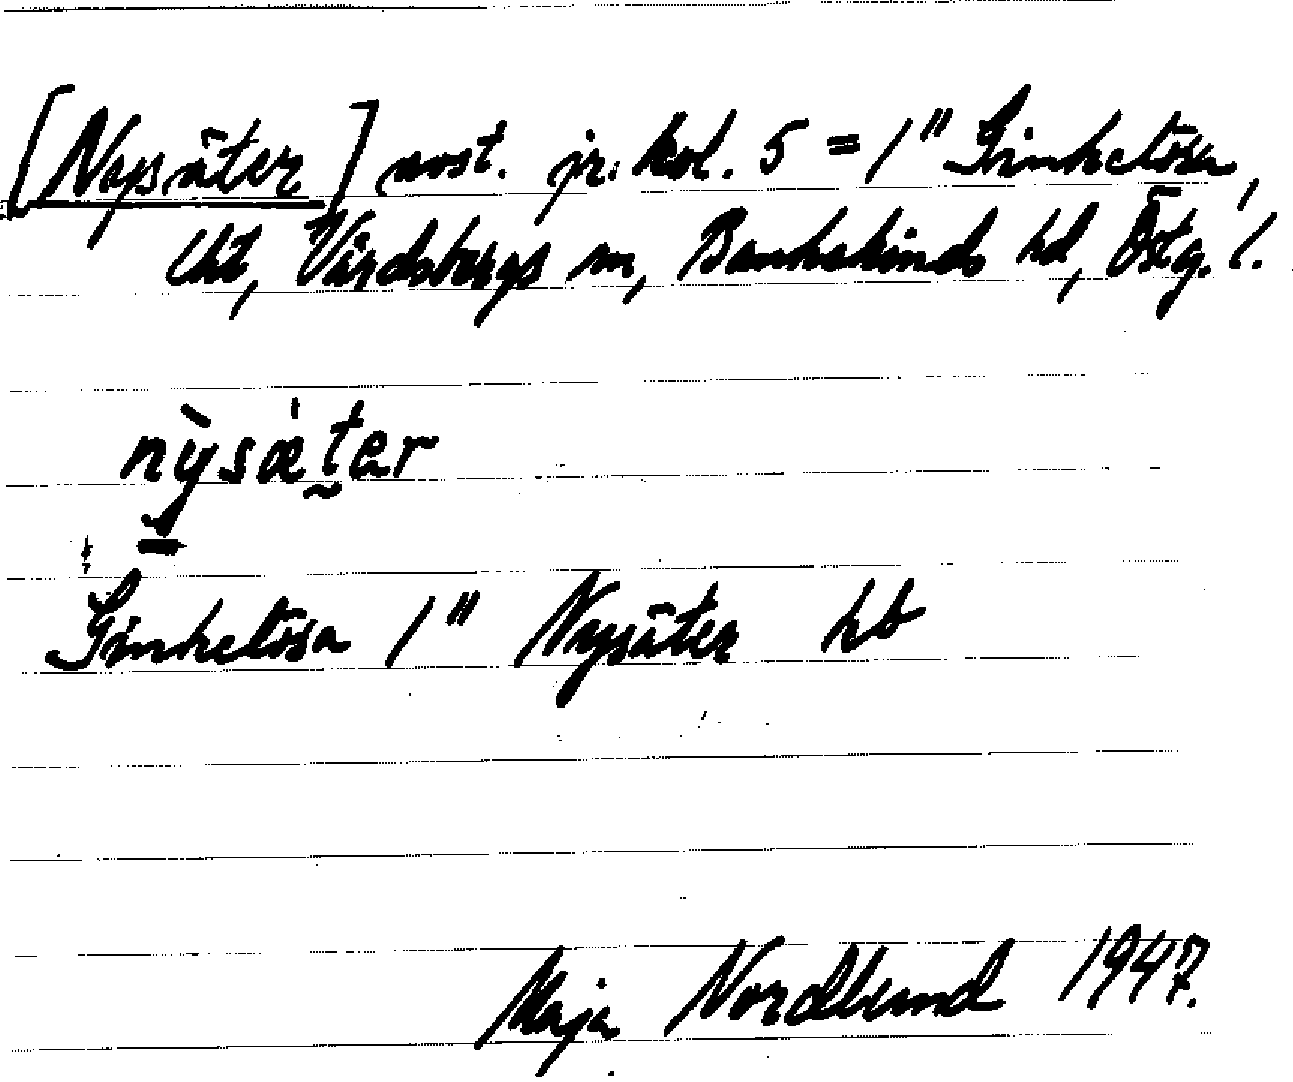 [Nysäter] nost. jr. kol. 5 = 1" Ginkelösa,
Uht, Vårdsbergs sn, Bankekinds hd, Östg. l.
nỳsæ̀ter
Ginkelösa 1" Nysäter hb
Maja Nordlund 1947.